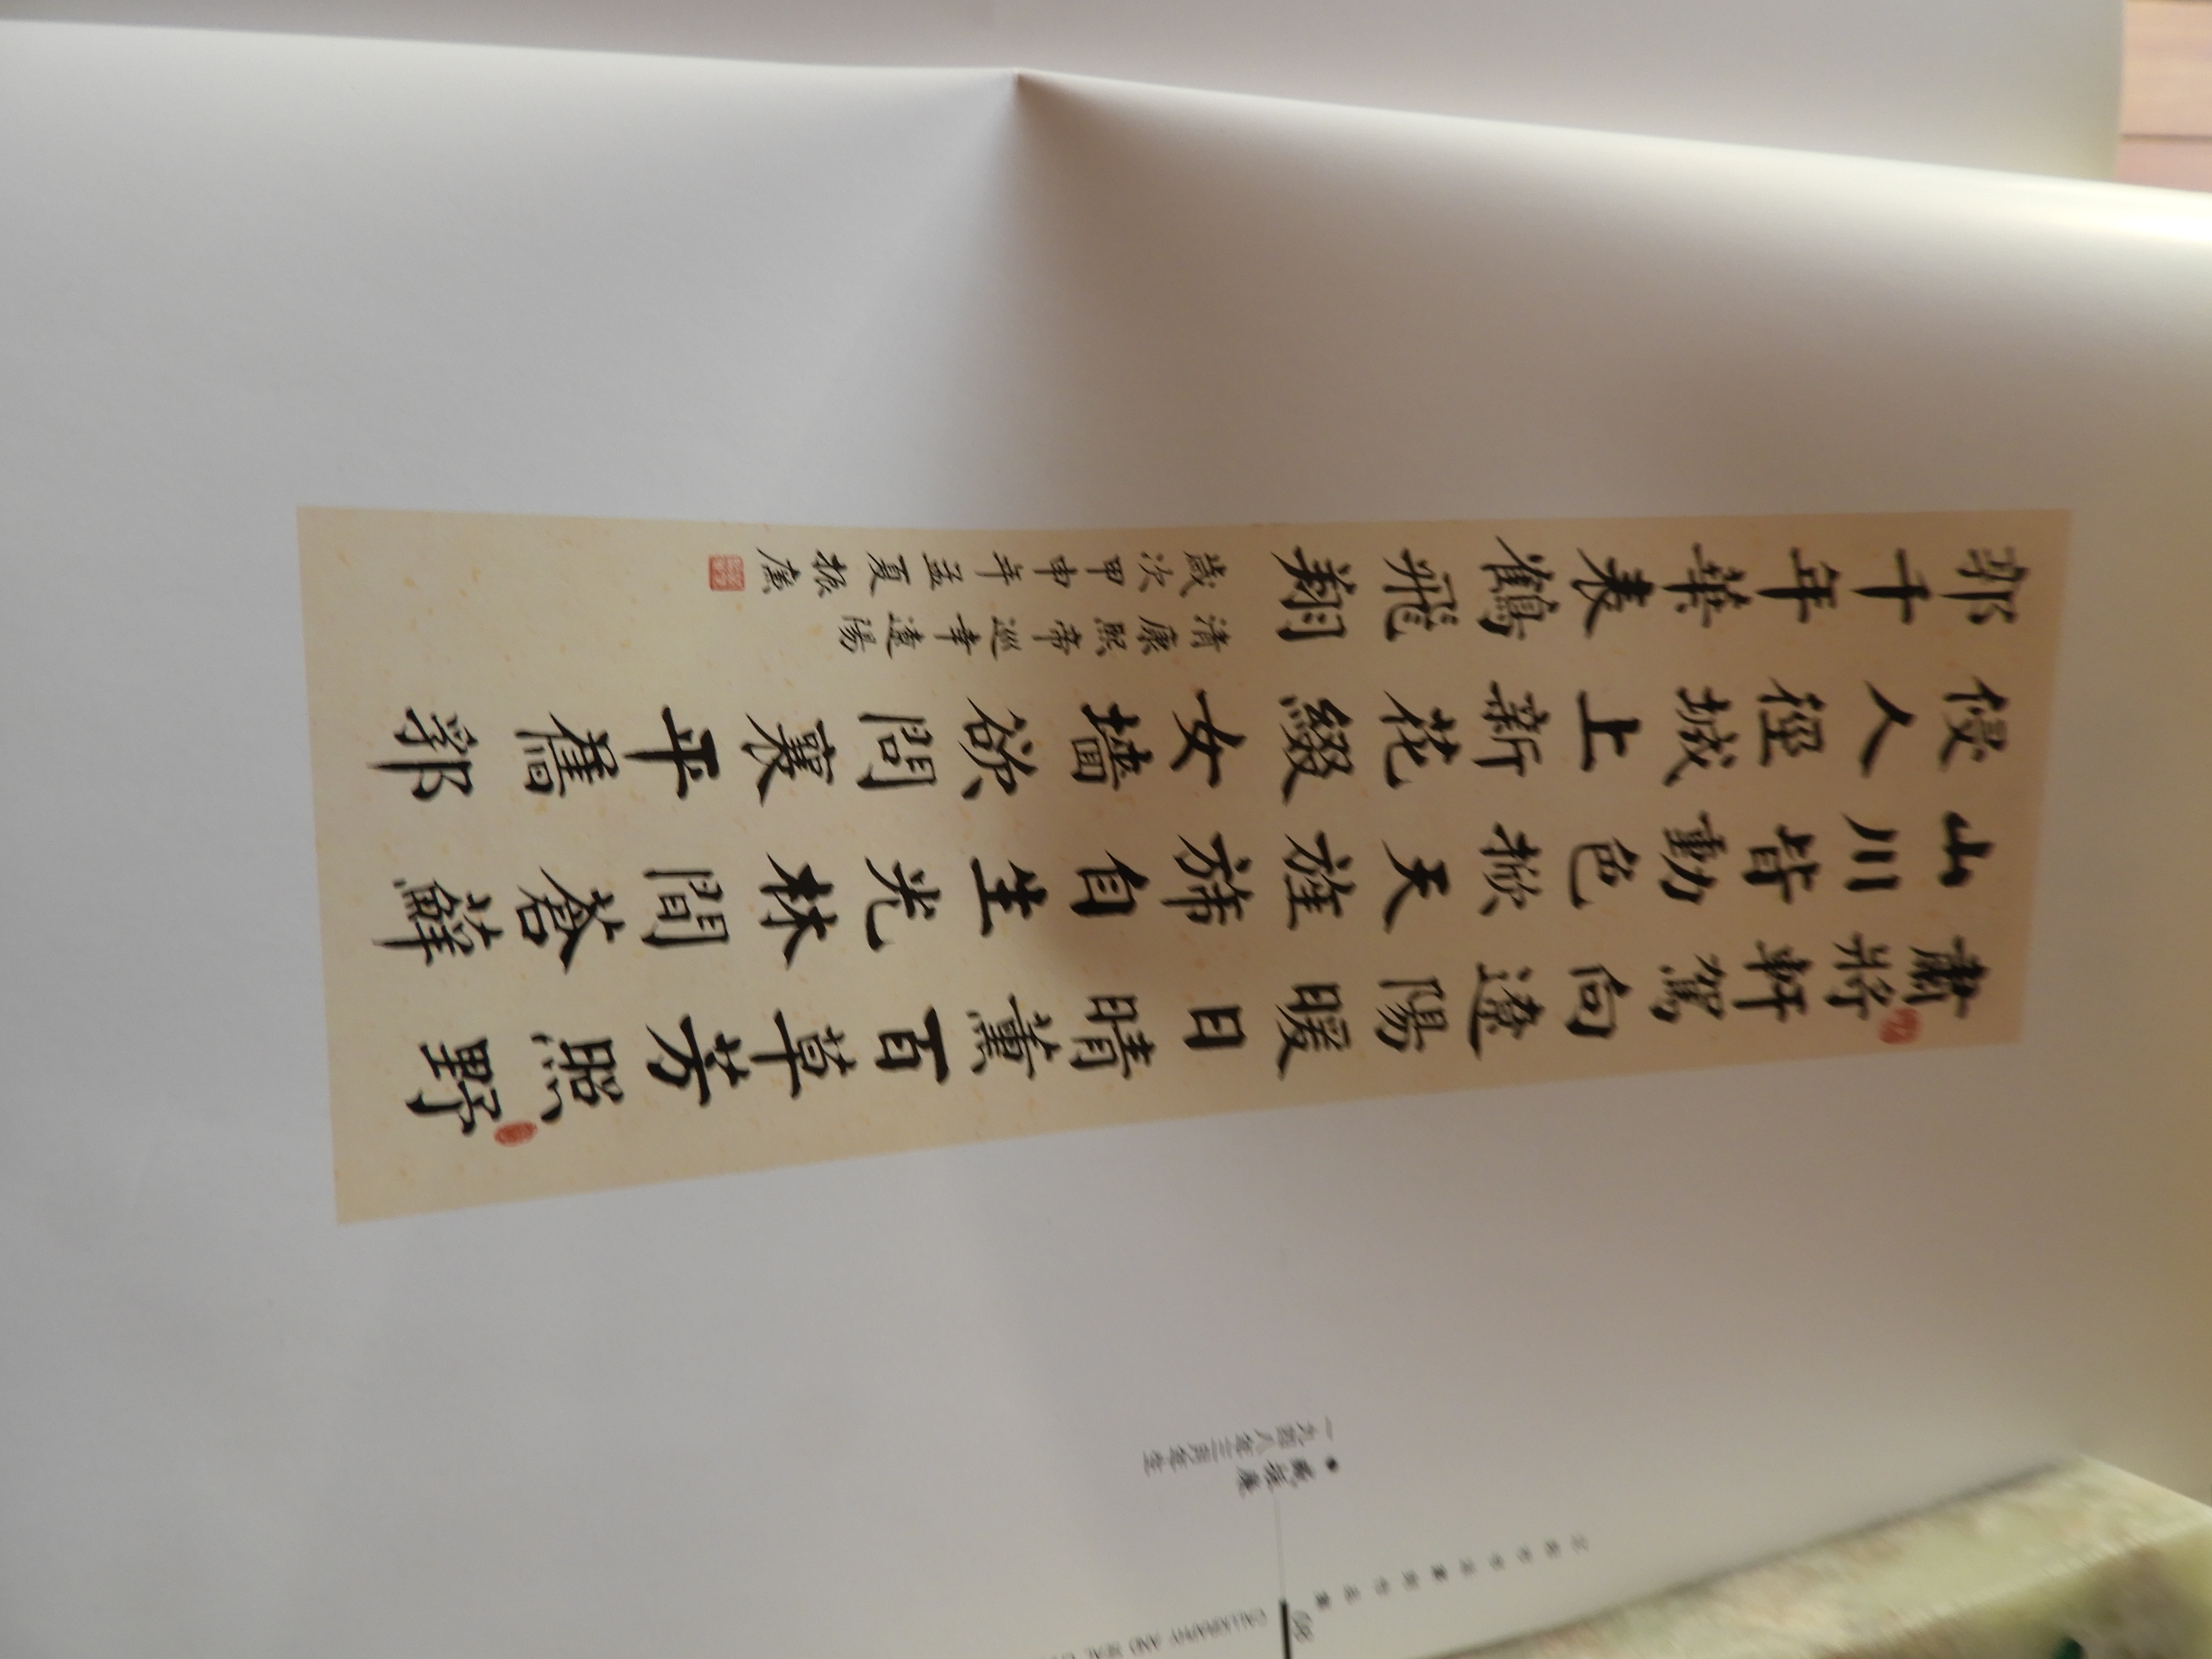 肅將軒駕向遼陽暖日晴薰百草芳照野
山川皆動色掀天旌斾自生光林間蒼蘚
侵人徑城上新花綴女墻欲問襄平舊郭
郭千年華表鶴飛翔
清康熙帝巡幸遼陽
歲次甲申年孟夏振廉
一九四八年三月年生
68
CALLIGRAPHY AND SEAL